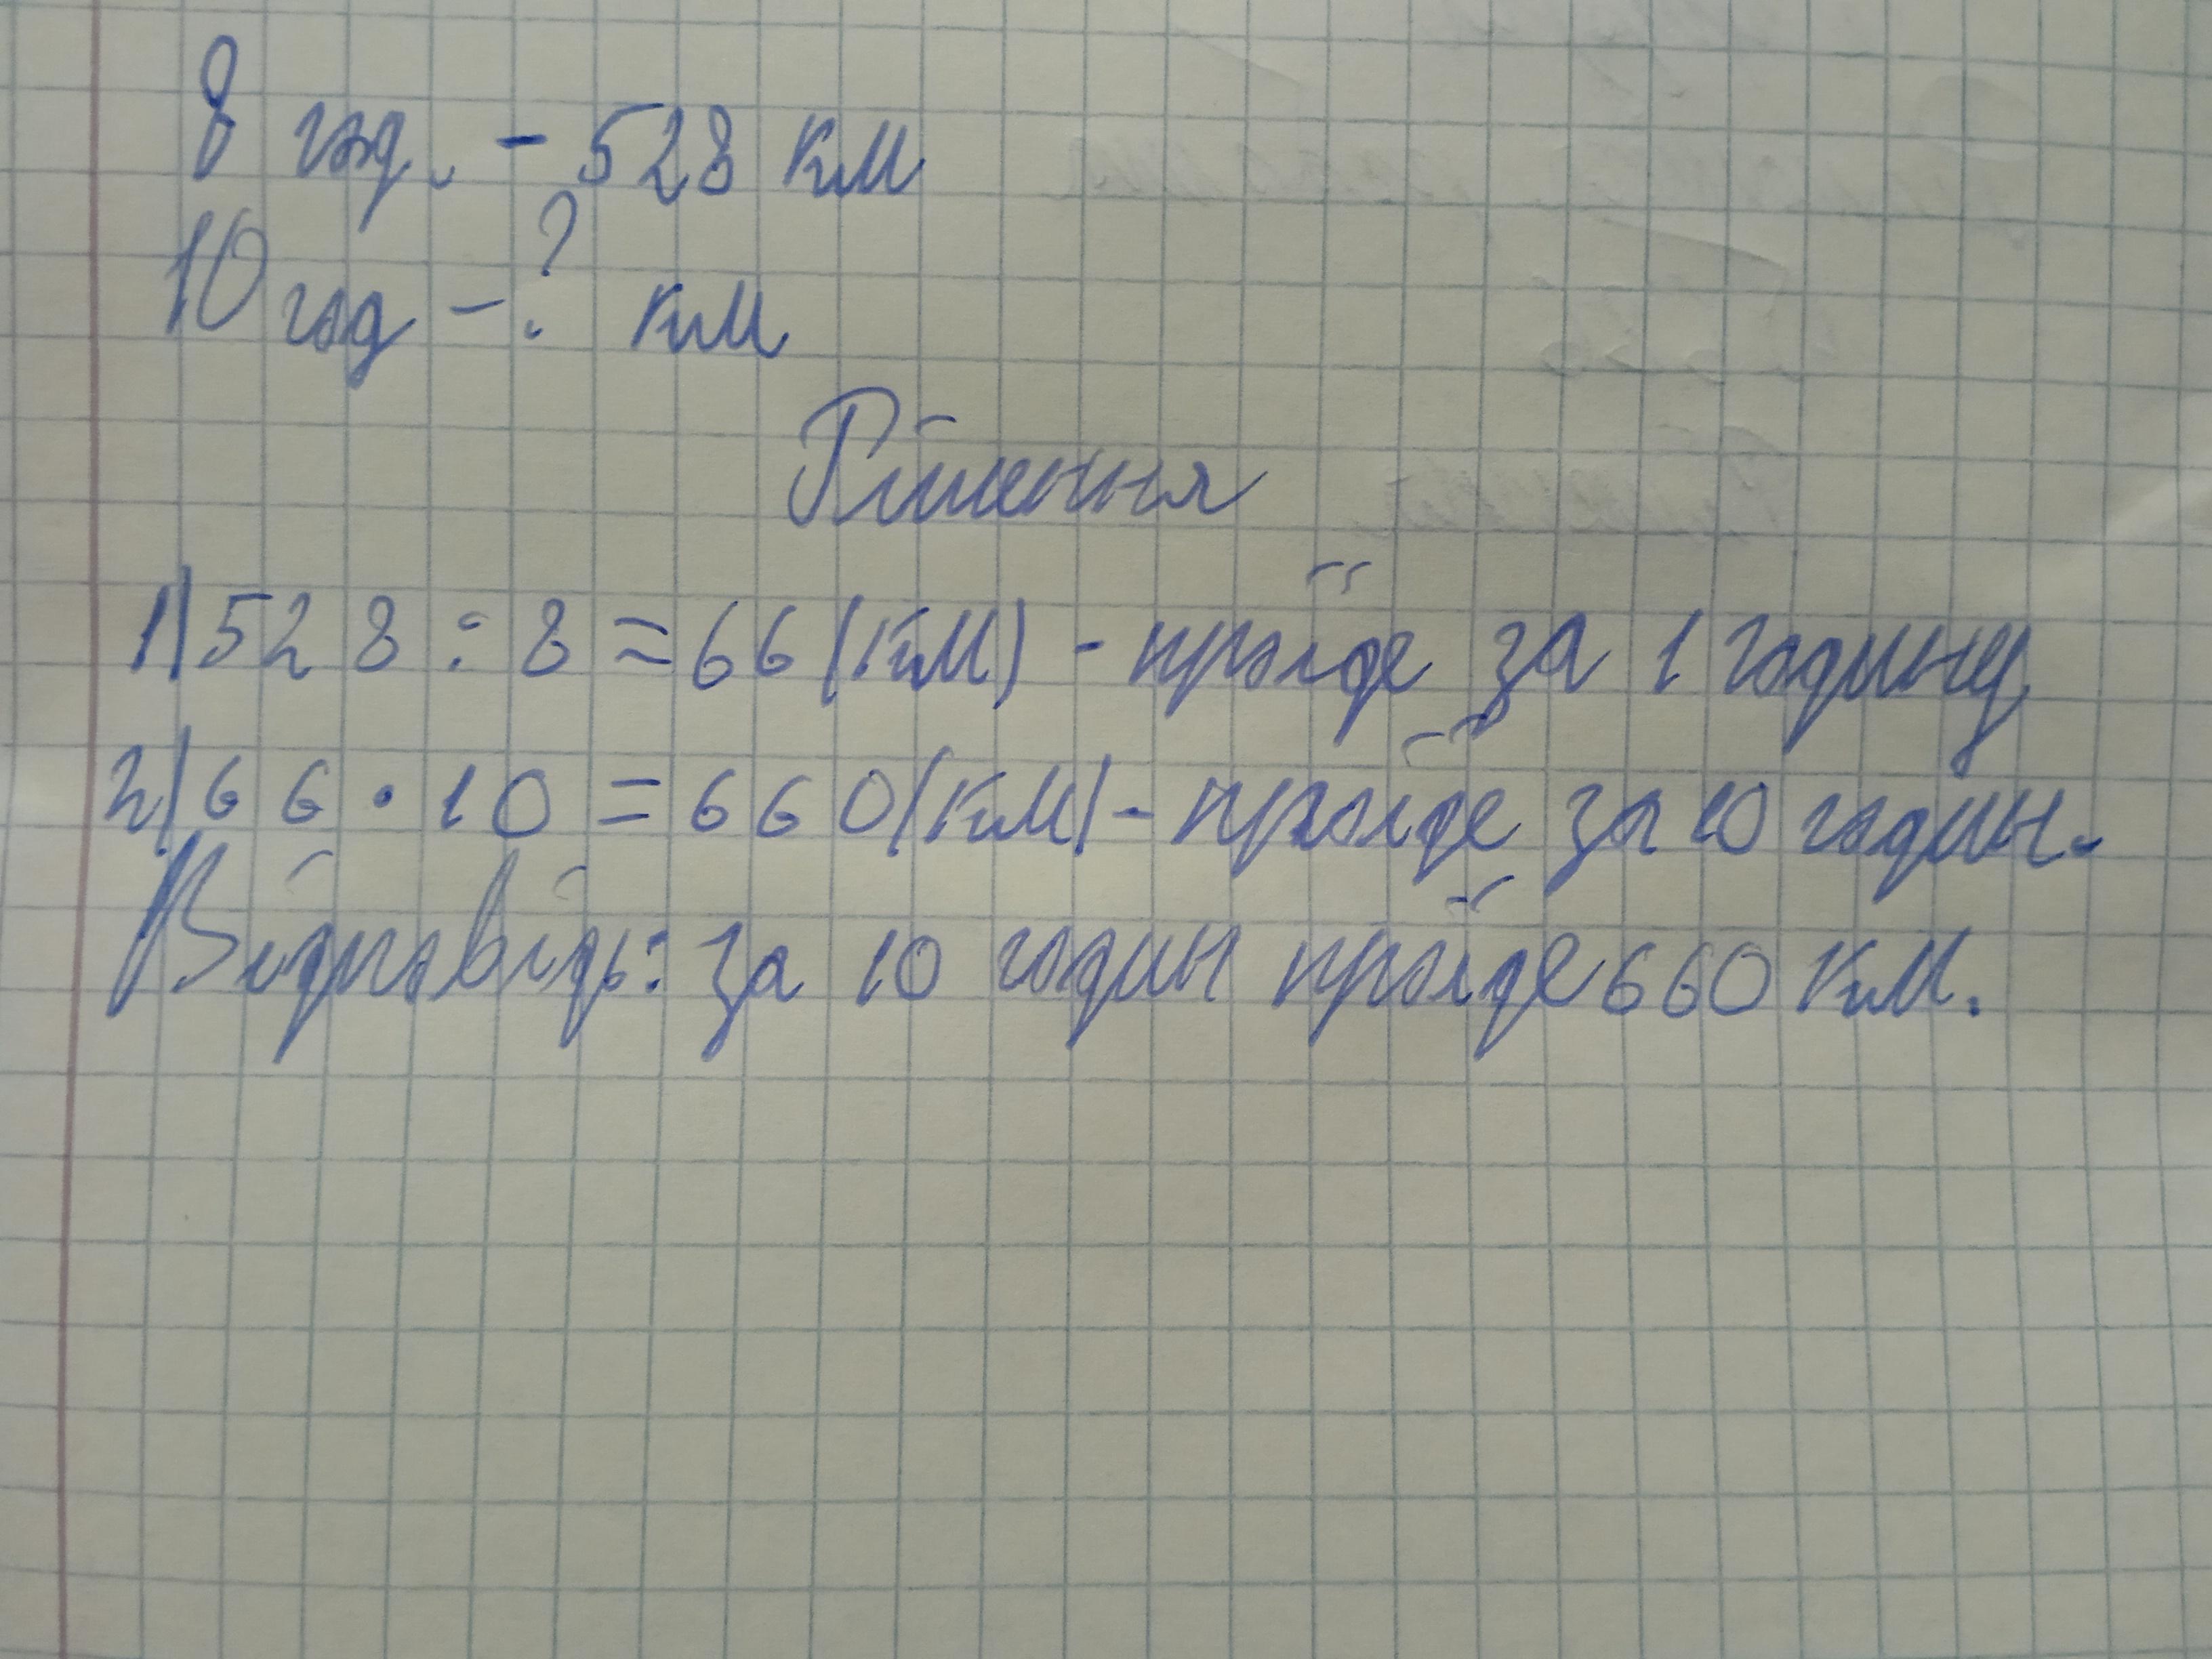 8 год. - 528 км
10 год - ? км
Рішення
1) 528 : 8 = 66 (км) - пройде за 1 годину
2) 66 · 10 = 660 (км) - пройде за 10 годин.
Відповідь: за 10 годин пройде 660 км.